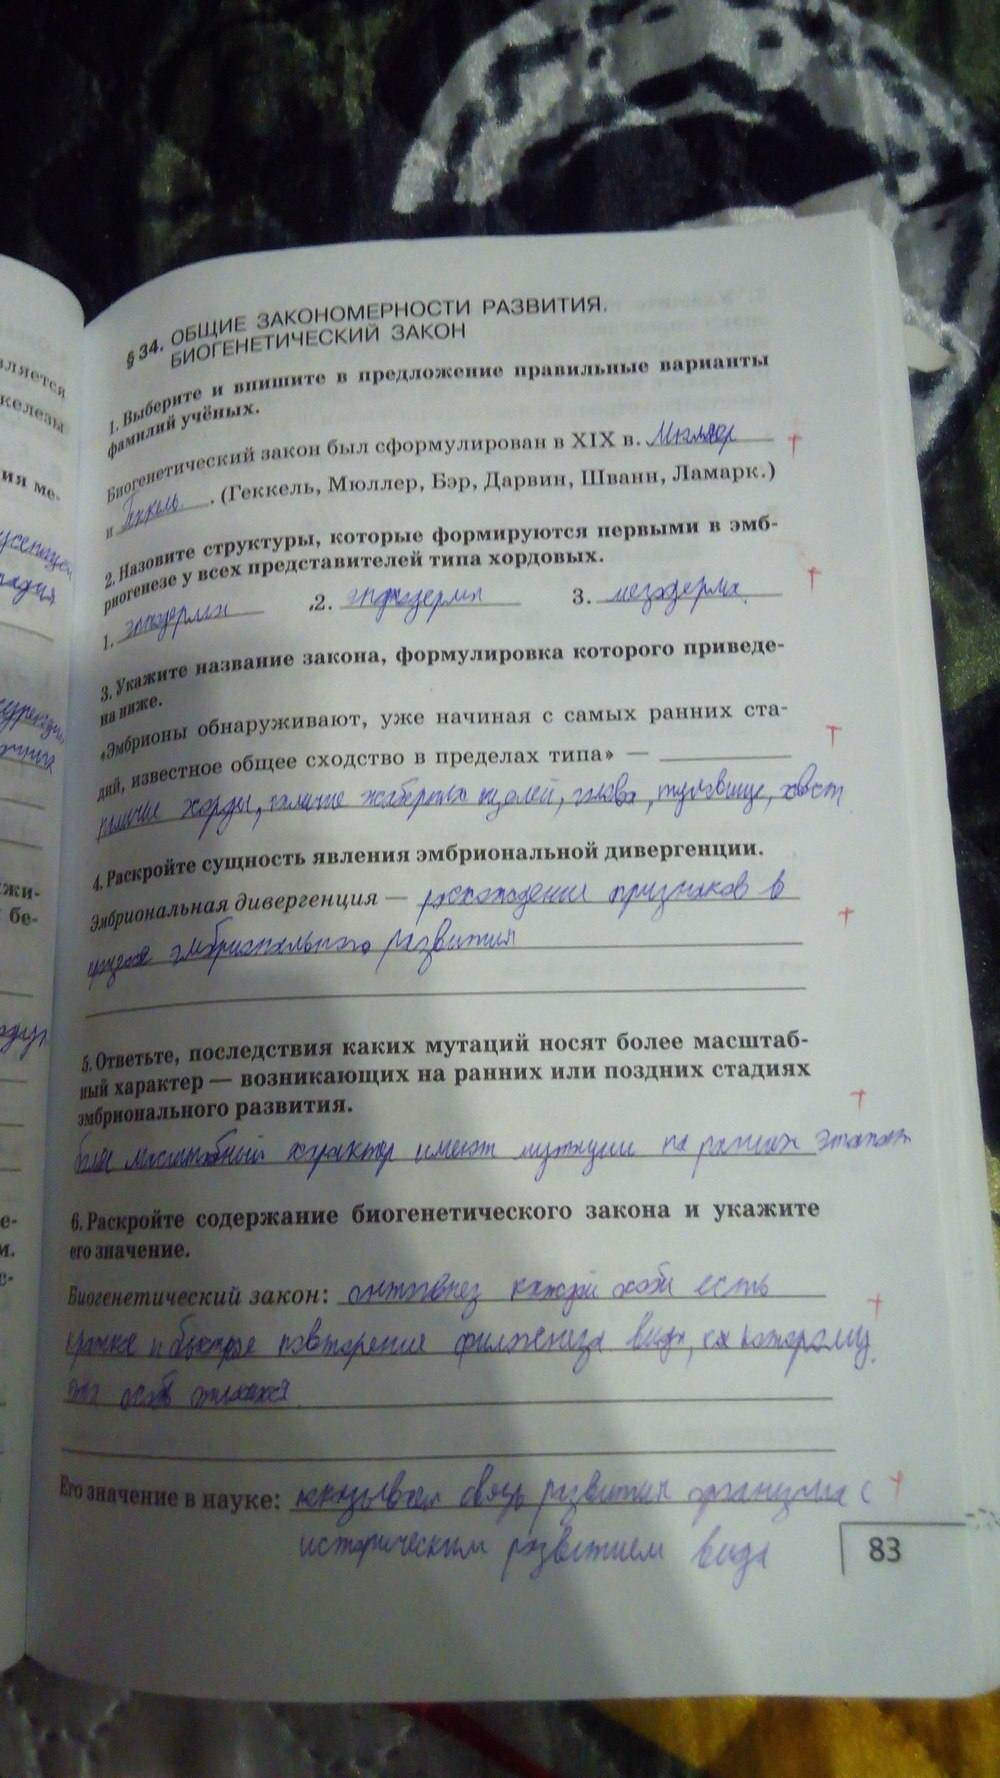 вляется
железы
ия ме-
§ 34. ОБЩИЕ ЗАКОНОМЕРНОСТИ РАЗВИТИЯ.
БИОГЕНЕТИЧЕСКИЙ ЗАКОН
1. Выберите и впишите в предложение правильные варианты
фамилий учёных.
Биогенетический закон был сформулирован в XIX в. Мюллер
и Геккель. (Геккель, Мюллер, Бэр, Дарвин, Шванн, Ламарк.)
2. Назовите структуры, которые формируются первыми в эмб-
риогенезе у всех представителей типа хордовых.
1. эктодерма 2. энтодерма 3. мезодерма
3. Укажите название закона, формулировка которого приведе-
на ниже.
«Эмбрионы обнаруживают, уже начиная с самых ранних ста-
дий, известное общее сходство в пределах типа» —
наличие хорды, наличие жаберных щелей, голова, туловище, хвост
4. Раскройте сущность явления эмбриональной дивергенции.
Эмбриональная дивергенция — расхождение признаков в
процессе эмбрионального развития
5. Ответьте, последствия каких мутаций носят более масштаб-
ный характер — возникающих на ранних или поздних стадиях
эмбрионального развития.
более масштабный характер имеют мутации на ранних этапах
6. Раскройте содержание биогенетического закона и укажите
его значение.
Биогенетический закон: онтогенез каждой особи есть
краткое и быстрое повторение филогенеза вида, к которому
эта особь относится
Его значение в науке: показывает связь развития организма с
историческим развитием вида
83